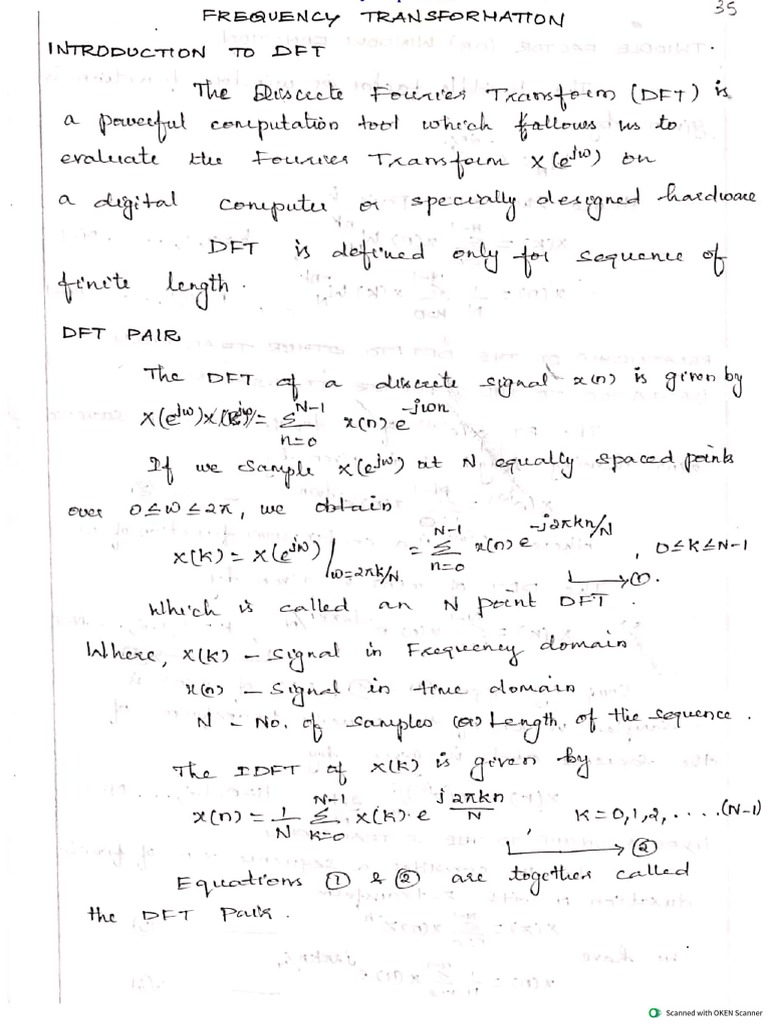 35
FREQUENCY TRANSFORMATION
INTRODUCTION TO DFT
The Discrete Fourier Transform (DFT) is
a powerful computation tool which fallows us to
evaluate the Fourier Transform X(e^jω) on
a digital computer or specially designed hardware
DFT is defined only for sequence of
finite length.
DFT PAIR
The DFT of a discrete signal x(n) is given by
X(e^jω) = Σ_{n=0}^{N-1} x(n) e^{-jωn}
If we sample X(e^jω) at N equally spaced points
over 0≤ω≤2π, we obtain
X(K) = X(e^jω)|_{ω=2πk/N} = Σ_{n=0}^{N-1} x(n) e^{-j2πkn/N}, 0≤K≤N-1
→ ①
Which is called an N point DFT.
Where, X(K) – Signal in Frequency domain
x(n) – Signal in time domain
N – No. of samples (or) Length of the sequence.
The IDFT of X(K) is given by
x(n) = 1/N Σ_{K=0}^{N-1} X(K) · e^{j2πkn/N} K=0,1,2,....(N-1)
→ ②
Equations ① & ② are together called
the DFT Pair.
Scanned with OKEN Scanner